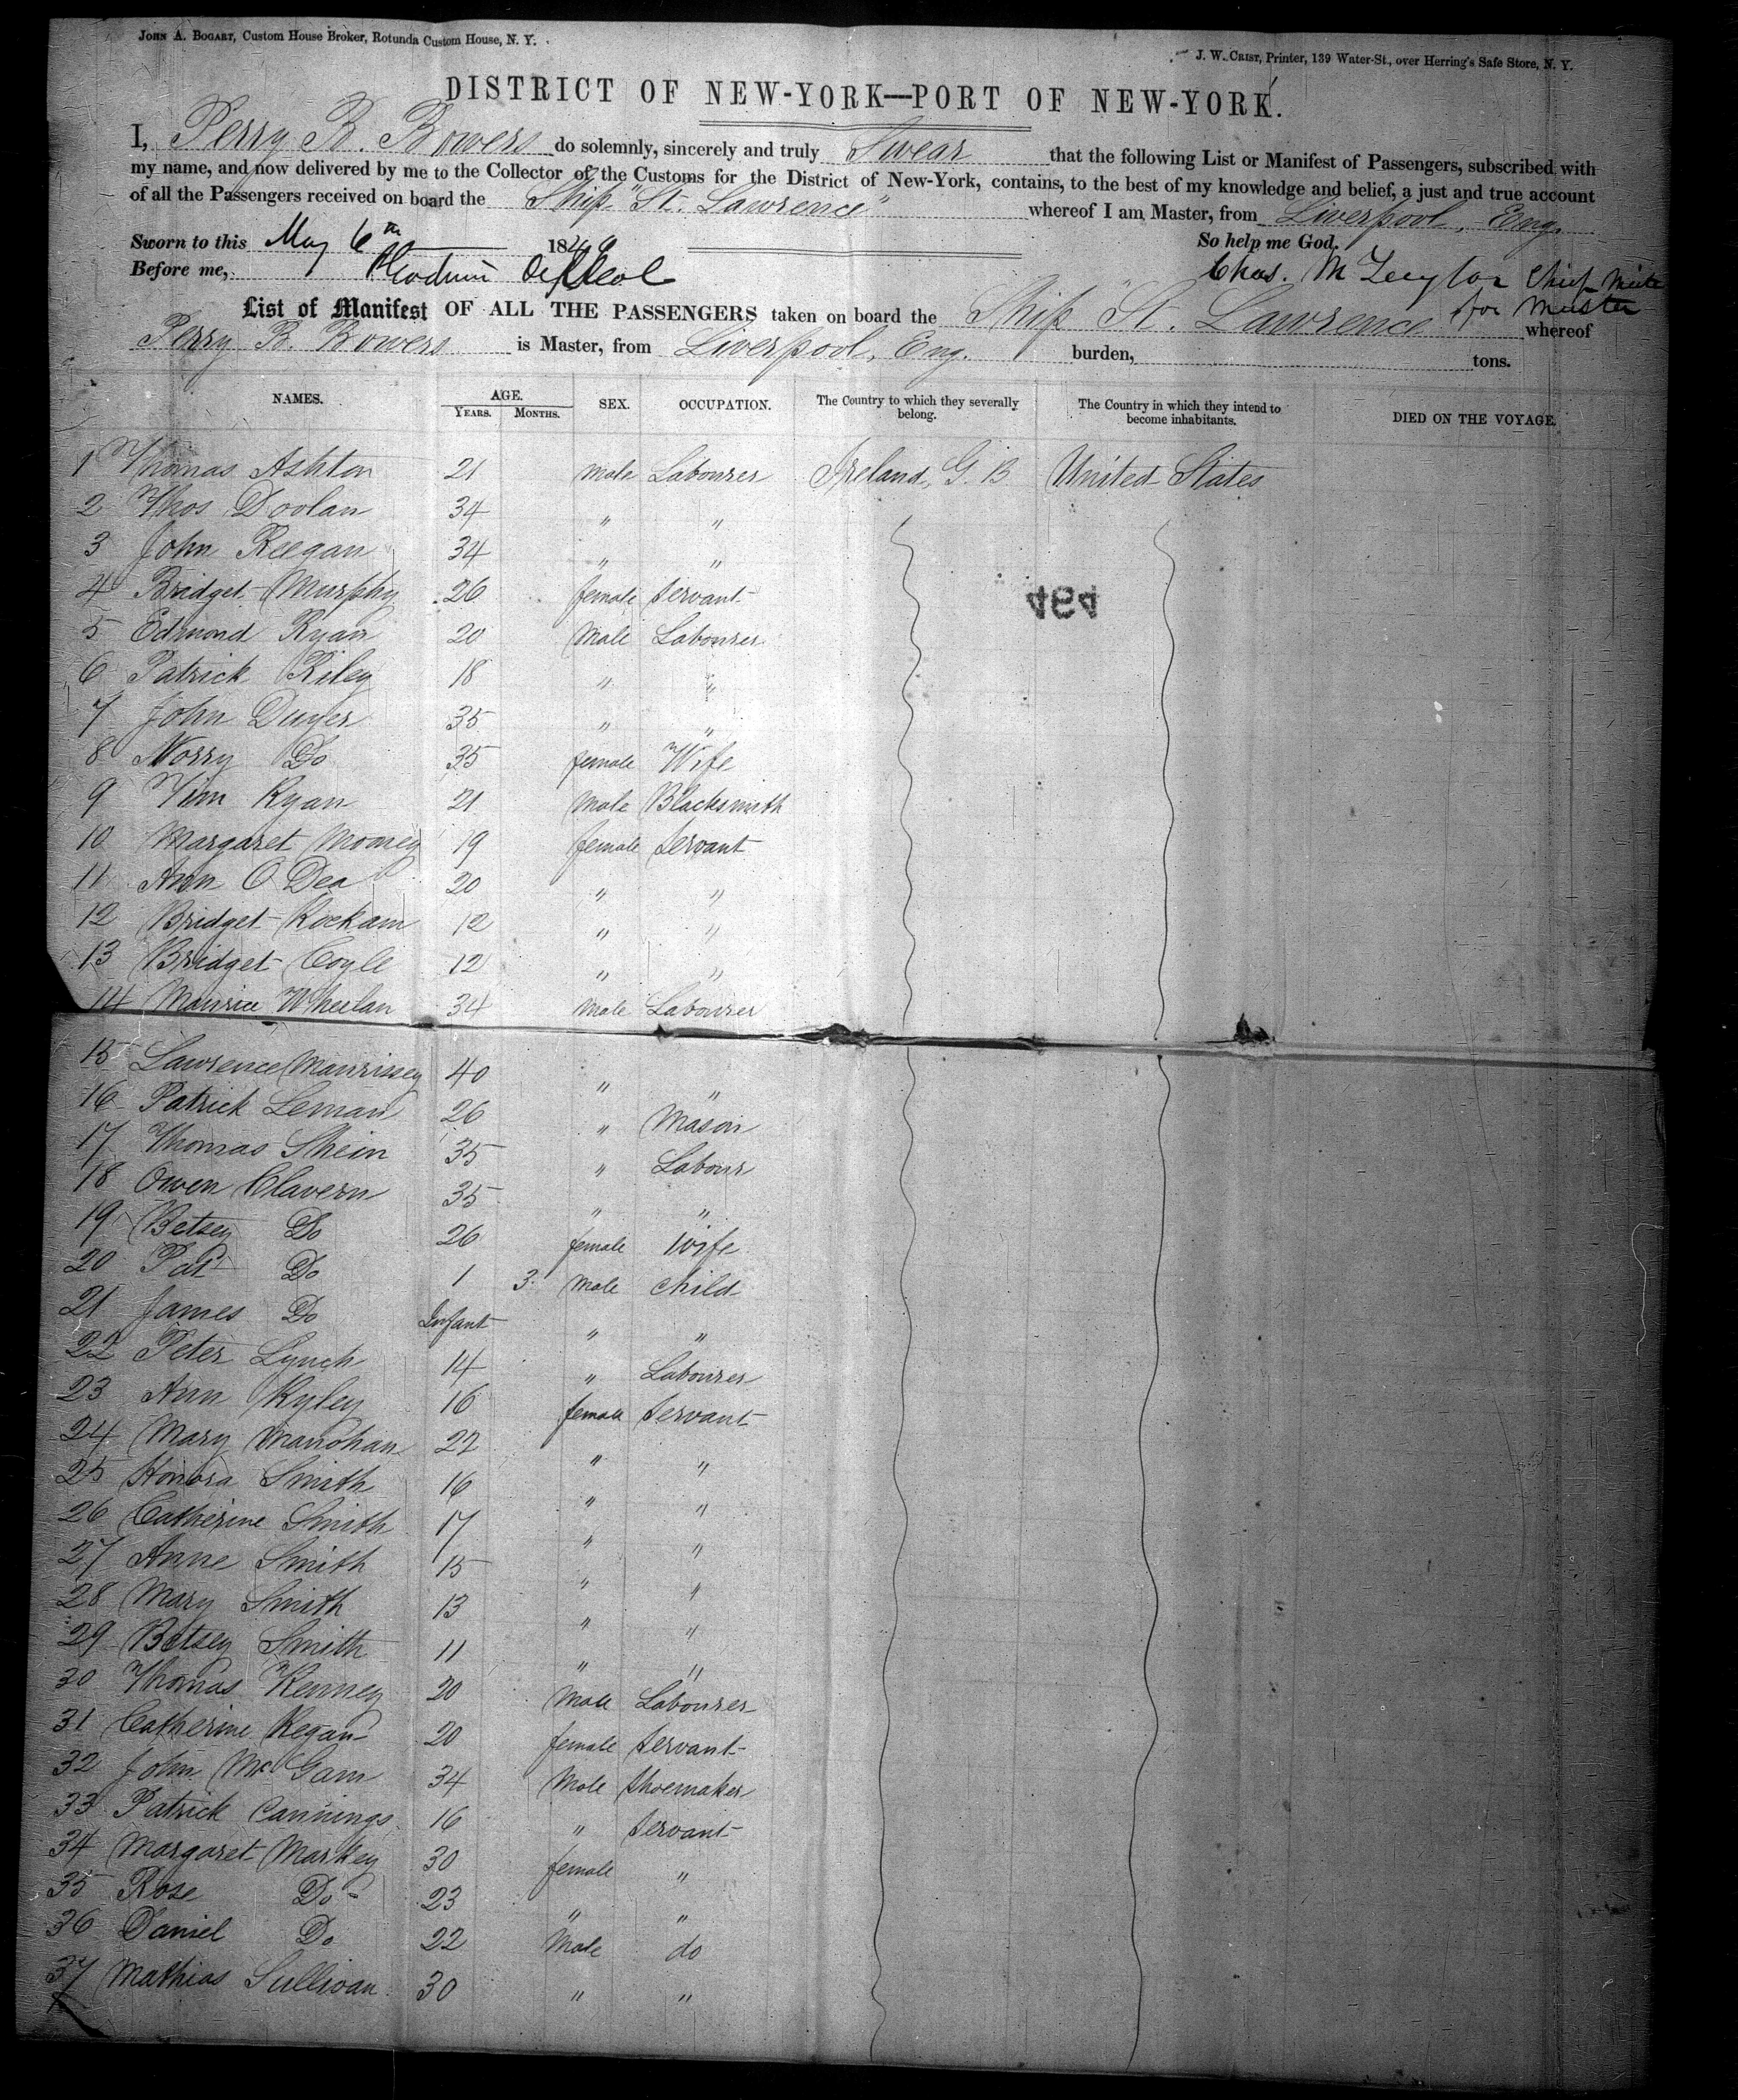 JOHN A. BOGART, Custom House Broker, Rotunda Custom House, N. Y.
J. W. CRIST, Printer, 139 Water-St., over Herring's Safe Store, N. Y.
DISTRICT OF NEW-YORK—PORT OF NEW-YORK.
I, Perry B. Bowers do solemnly, sincerely and truly Swear that the following List or Manifest of Passengers, subscribed with
my name, and now delivered by me to the Collector of the Customs for the District of New-York, contains, to the best of my knowledge and belief, a just and true account
of all the Passengers received on board the Ship "St. Lawrence" whereof I am Master, from Liverpool, Eng.
Sworn to this May 6th 1849 So help me God.
Before me, Chas. M Chief Mate
for Master
List of Manifest OF ALL THE PASSENGERS taken on board the Ship "St. Lawrence whereof
Perry B. Bowers is Master, from Liverpool, Eng. burden, tons.
NAMES. AGE. YEARS. MONTHS. SEX. OCCUPATION. The Country to which they severally belong. The Country in which they intend to become inhabitants. DIED ON THE VOYAGE.
1 Thomas Ashton 21 male Labourer Ireland, G. B United States
2 Thos Doolan 34 " "
3 John Keegan 34 " "
464
4 Bridget Murphy 26 female Servant
5 Edmond Ryan 20 Male Labourer
6 Patrick Riley 18 " "
7 John Dwyer 35 " "
8 Norry Do 35 female Wife
9 Tim Ryan 21 Male Blacksmith
10 Margaret Mooney 19 female Servant
11 Ann O Dea 20 " "
12 Bridget Rockam 12 " "
13 Bridget Coyle 12 " "
14 Maurice Wheelan 34 Male Labourer
15 Lawrence Maurissey 40 " "
16 Patrick Leman 26 " Mason
17 Thomas Shein 35 " Labour
18 Owen Clavern 35 " "
19 Betsey Do 26 female Wife
20 Pat Do 1 3 Male child
21 James Do Infant " "
22 Peter Lynch 14 " Labourer
23 Ann Ryley 16 female Servant
24 Mary Manohan 22 " "
25 Honora Smith 16 " "
26 Catherine Smith 17 " "
27 Anne Smith 15 " "
28 Mary Smith 13 " "
29 Betsey Smith 11 " "
30 Thomas Kenney 20 Male Labourer
31 Catherine Regan 20 female Servant
32 John Mc Gam 34 Male Shoemaker
33 Patrick Cannings 16 " Servant
34 Margaret Markey 30 female "
35 Rose Do 23 " "
36 Daniel Do 22 Male do
37 Mathias Sullivan 30 " "